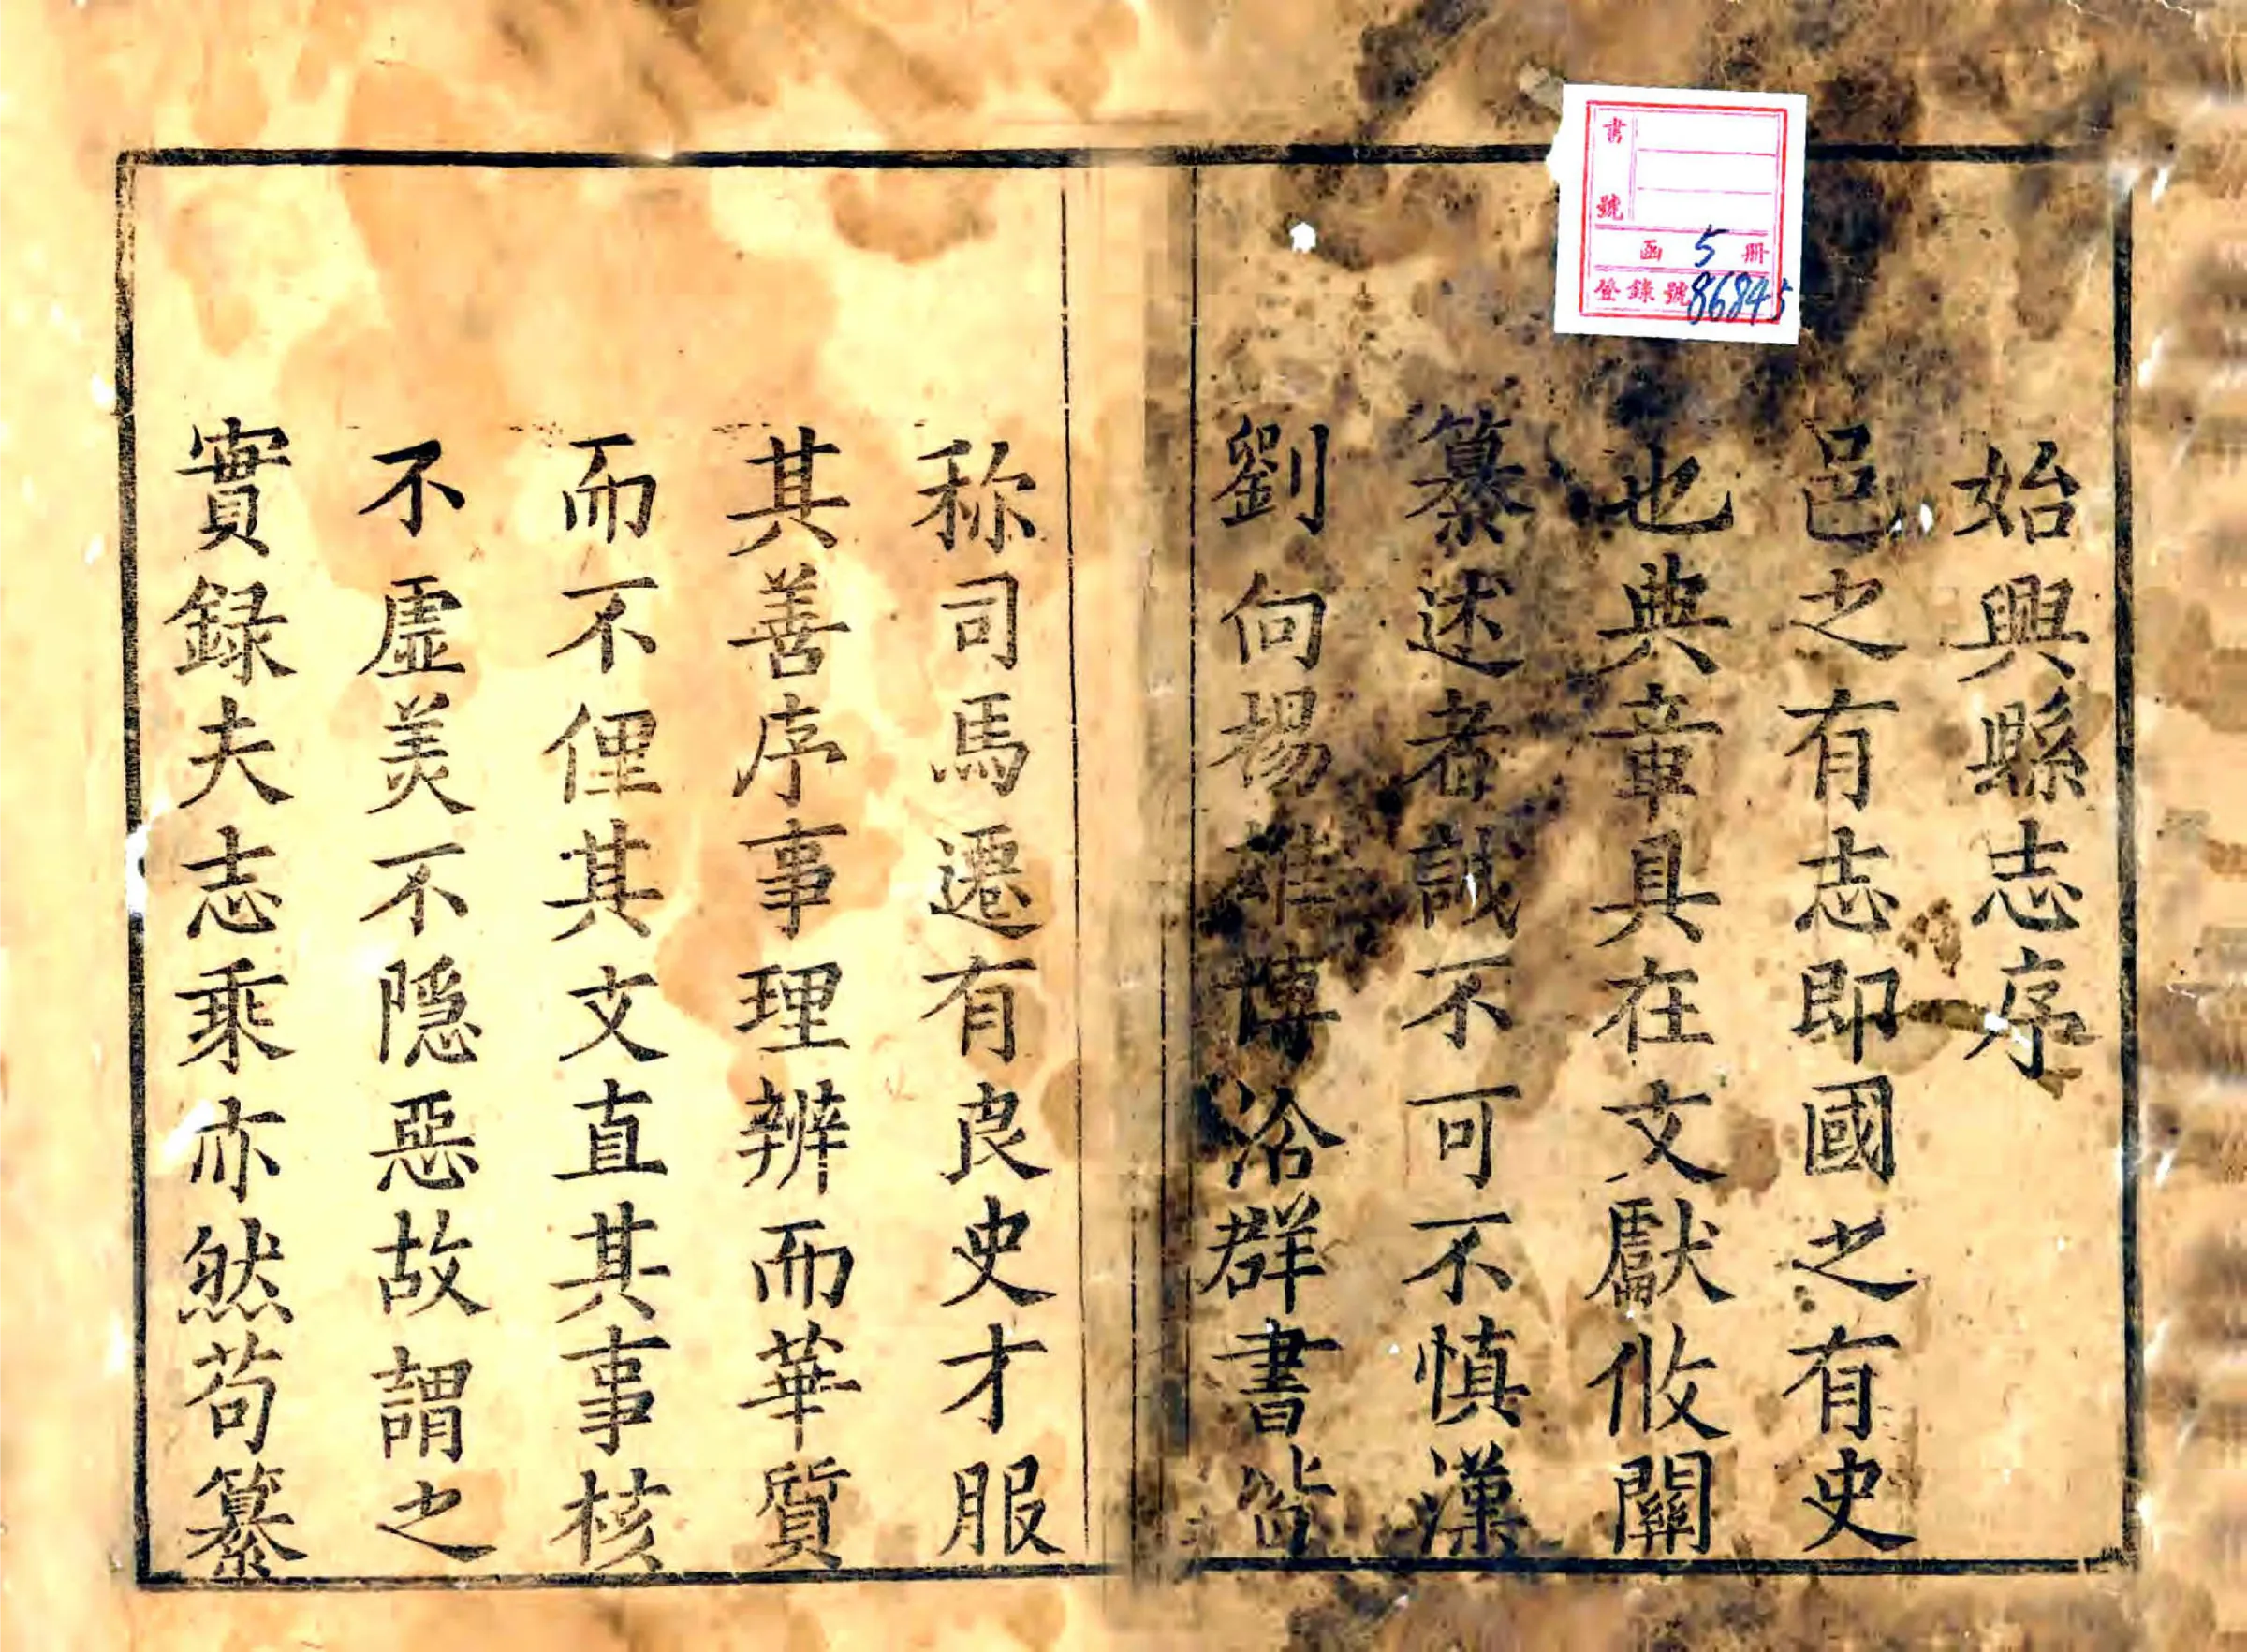 始興縣志序
邑之有志即國之有史
也典章具在文獻攸關
纂述者誠不可不慎漢
劉向揚雄博洽群書皆
称司馬遷有良史才服
其善序事理辨而華質
而不俚其文直其事核
不虛美不隱惡故謂之
實録夫志乘亦然苟纂
書號
函 5 册
登錄號86845